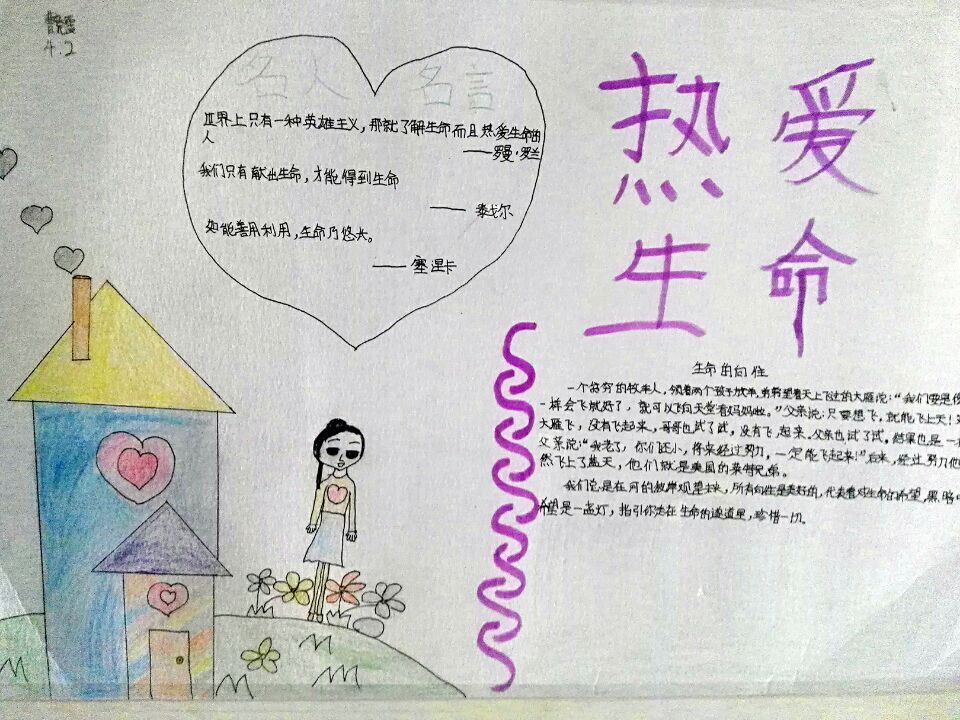 4.2
名人 名言
世界上只有一种英雄主义，那就了解生命而且热爱生命的
人
——罗曼·罗兰
我们只有献出生命，才能得到生命
——泰戈尔
如能善用利用，生命乃悠长。
——塞涅卡
热爱
生命
生命的向往
一个贫穷的牧羊人，领着两个孩子放羊，弟希望着天上飞过的大雁说：“我们要是像
一样会飞就好了，就可以飞向天堂看妈妈啦。”父亲说：只要想飞，就能飞上天！
大雁飞，没有飞起来，哥哥也试了试，没有飞起来。父亲也试了试。结果也是一
父亲说：“我老了，你们还小，将来经过努力，一定能飞起来！”后来，经过努力他
然飞上了蓝天，他们就是美国的莱特兄弟。
我们总是在河的彼岸观望未来，所有向往是美好的，代表着对生命的希望，黑暗中
希望是一盏灯，指引你走在生命的隧道里，珍惜一切。